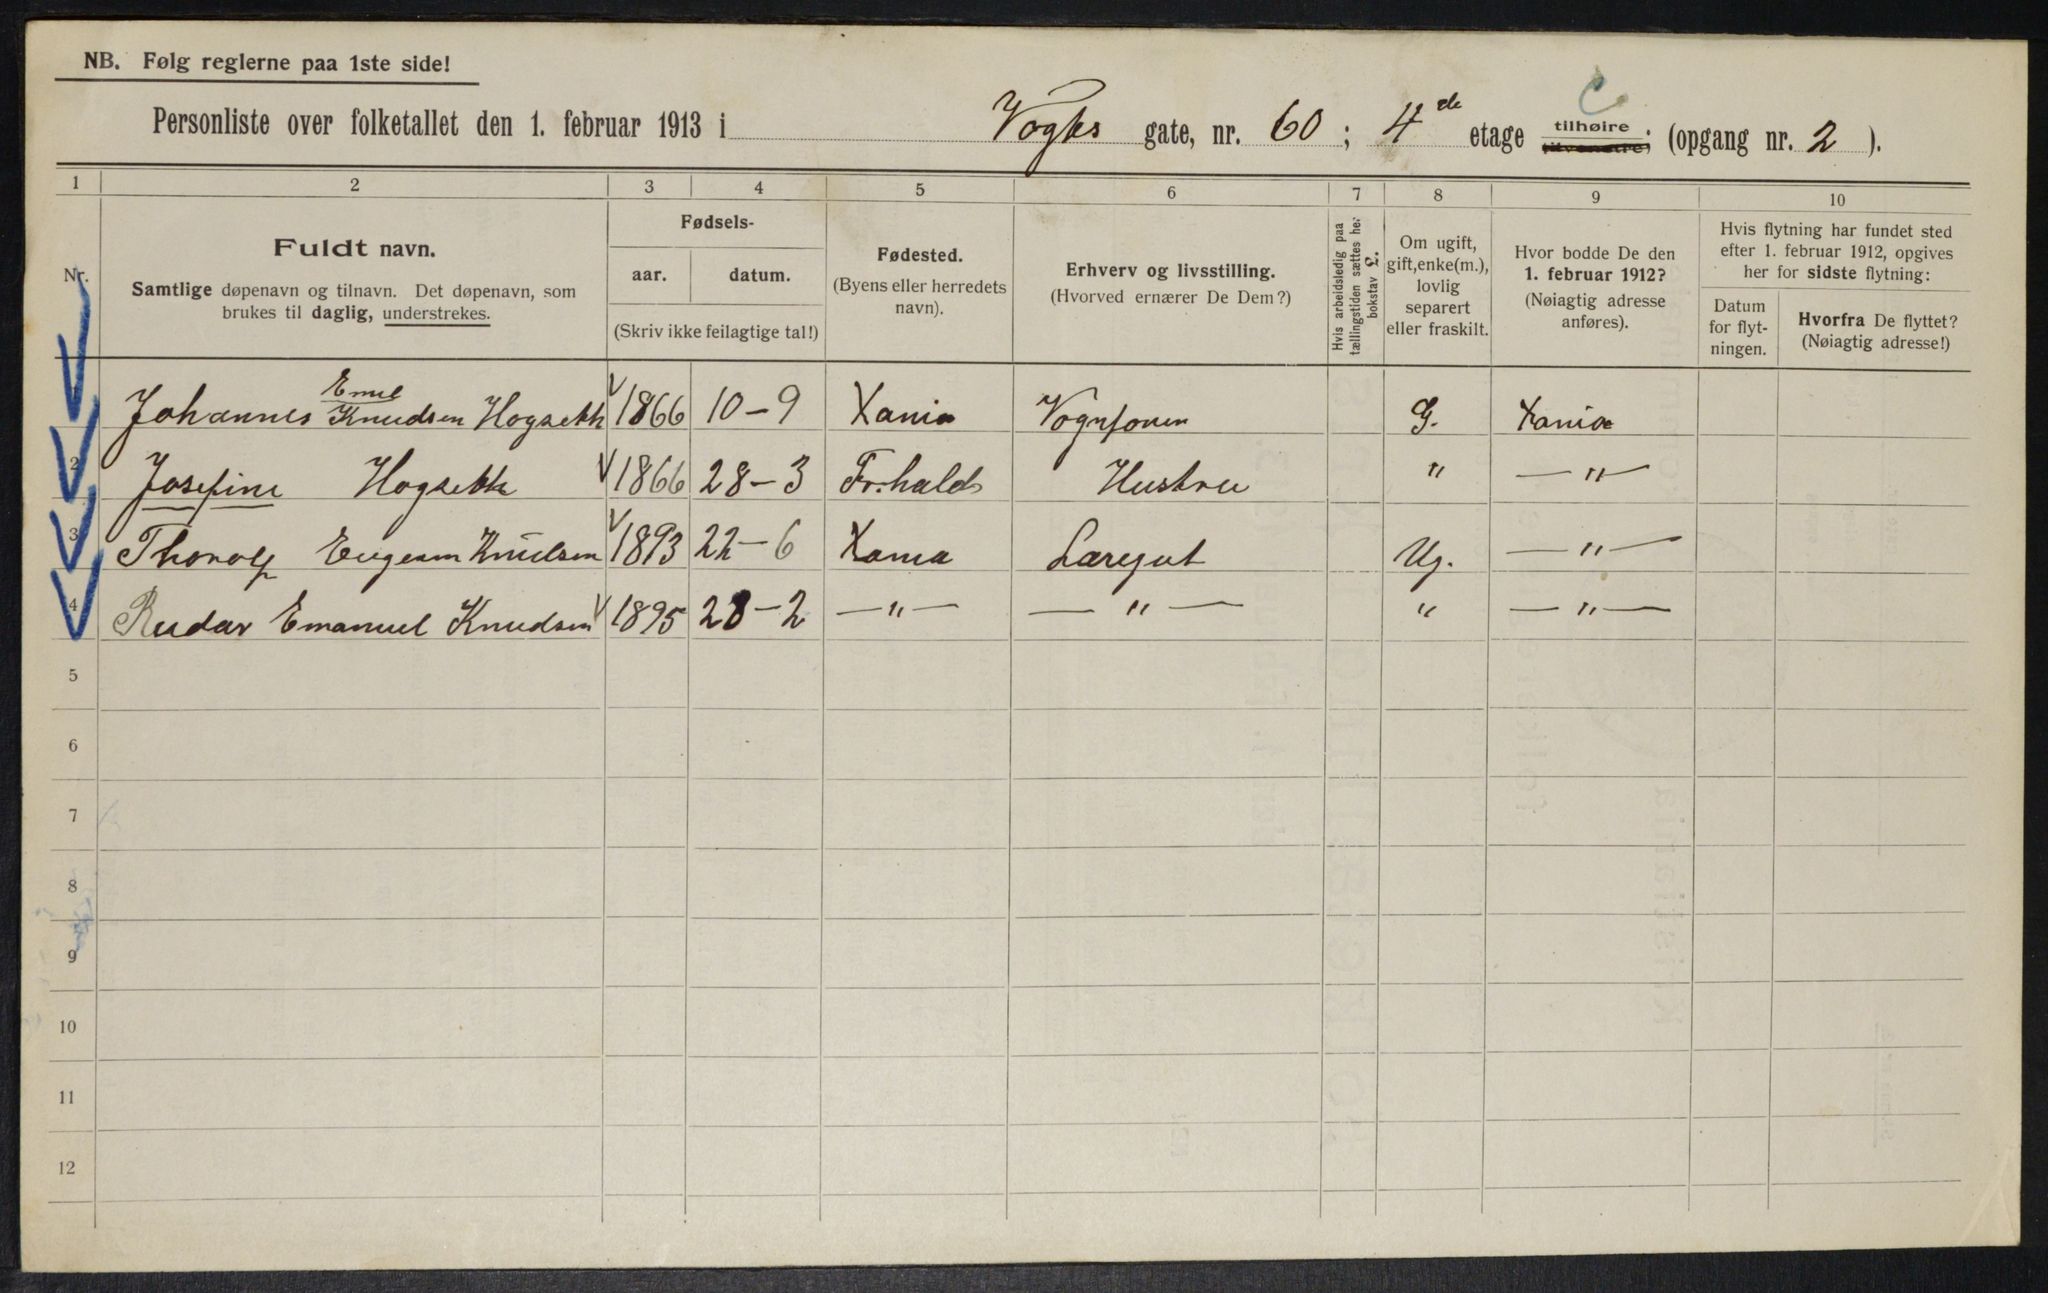 NB. Følg reglerne paa 1ste side!
C
Personliste over folketallet den 1. februar 1913 i Vogts gate, nr. 60 ; 4de etage tilhøire tilvenstre) . (opgang nr. 2 ).
1 2 3 4 5 6 7 8 9 10
Nr.
Fuldt navn.
Samtlige døpenavn og tilnavn. Det døpenavn, som
brukes til daglig, understrekes.
Fødsels-
aar. datum.
(Skriv ikke feilagtige tal!)
Fødested.
(Byens eller herredets
navn).
Erhverv og livsstilling.
(Hvorved ernærer De Dem?)
Hvis arbeidsledig paa
tællingstiden sættes her
bokstav L.
Om ugift,
gift, enke(m.),
lovlig
separert
eller fraskilt.
Hvor bodde De den
1. februar 1912?
(Nøiagtig adresse
anføres).
Hvis flytning har fundet sted
efter 1. februar 1912, opgives
her for sidste flytning:
Datum
for flyt-
ningen.
Hvorfra De flyttet?
(Nøiagtig adresse!)
Emil
Johannes Knudsen Hogseth 1866 10-9 Xania G. Xania
2 Josefine Hogseth 1866 28-3 Fr.hald Hustru " — " —
3 Thorolf Eugen Knudsen 1893 22-6 Xania Ug. — " —
4 Emanuel Knudsen 1895 28-2 — " — — " — " — " —
5
6
7
8
9
10
11
12